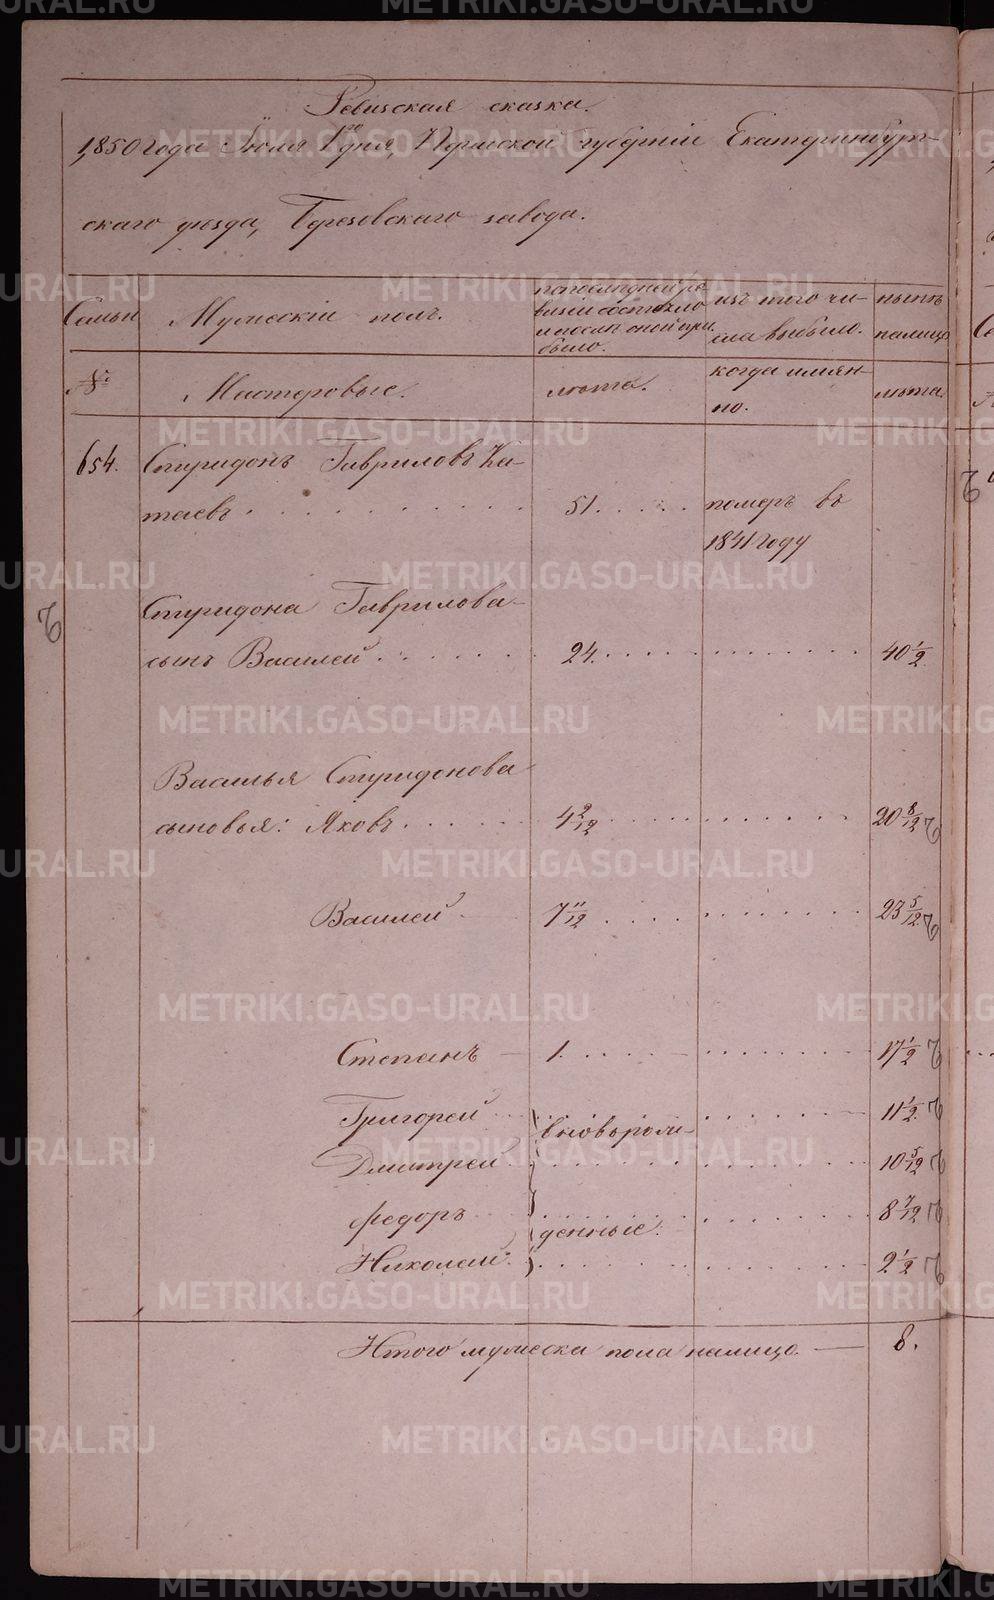 Ревизская сказка.
1850 года Июля 1го дня, Пермской губернiи Екатеринбург-
скаго уезда, Березовскаго завода.
Семьи
Мужескiй полъ.
по последней ре-
визiи состояло
и после оной при-
было.
изъ того чи-
сла выбыло.
ныне
налицо
№
Мастеровые.
лета.
когда имян-
но.
лета.
654.
Спиридонъ Гавриловъ Ка-
таевъ
51.
померъ въ
1841 году
Спиридона Гаврилова
сынъ Василей
24.
40 1/2.
Василья Спиридонова
сыновья: Яковъ
4 2/12
20 8/12
Василей
7 11/12
23 5/12.
Степанъ
1.
17 1/2
Григорей
11 1/2.
вновьрож-
Дмитрей
10 5/12
Федоръ
8 7/12
денные.
Николай.
2 1/2
Итого мужеска пола налицо. — 8.
METRIKI.GASO-URAL.RU